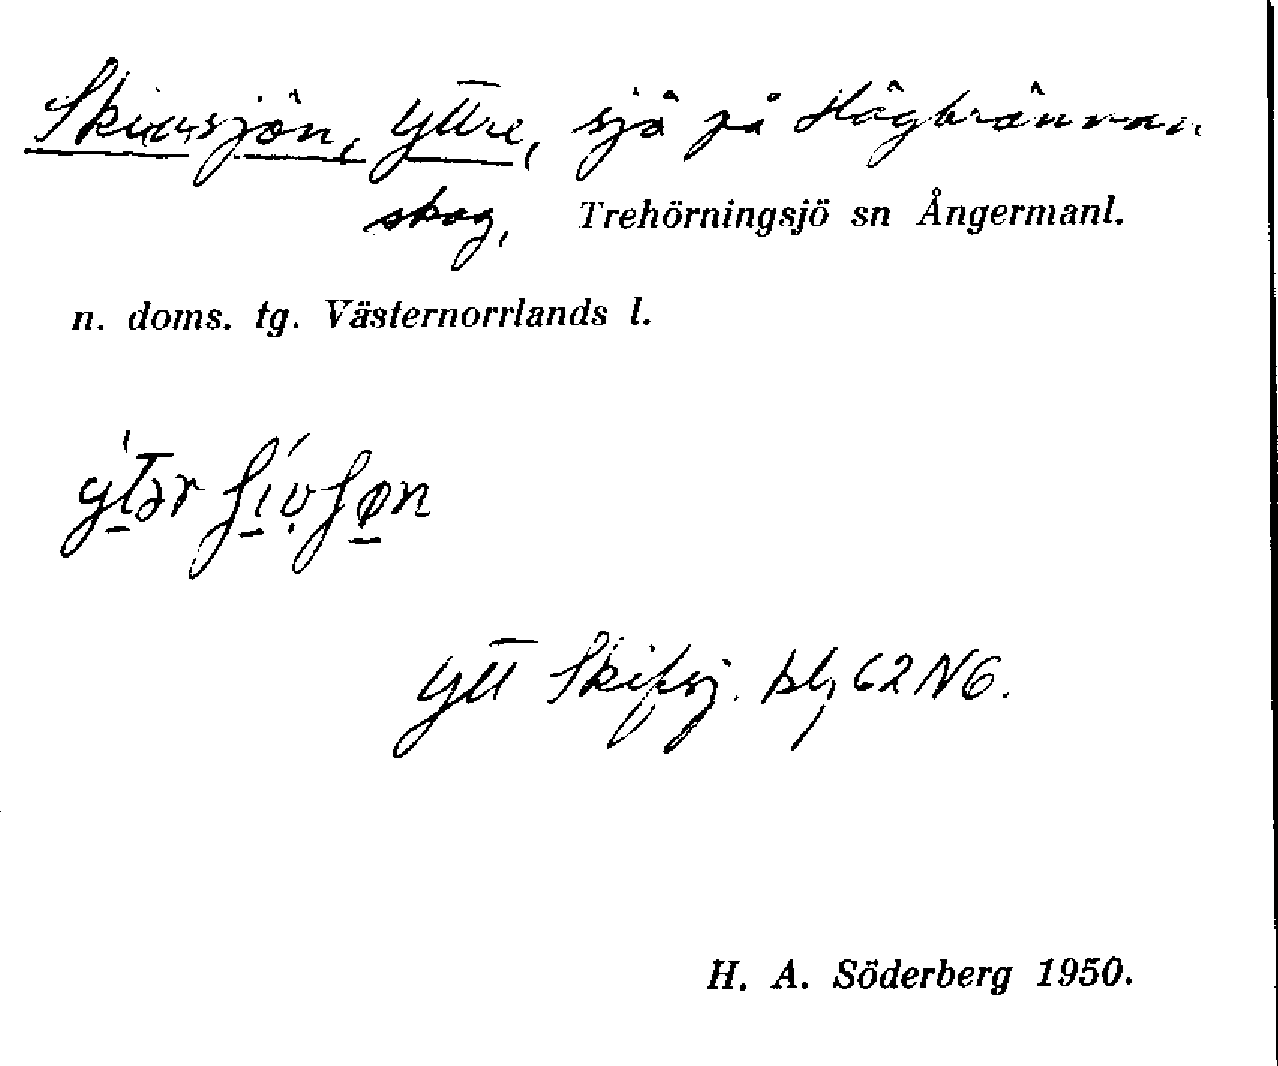 Skivsjön, Yttre, sjö på Högbrännan
skog, Trehörningsjö sn Ångermanl.
n. doms. tg. Västernorrlands l.
Ytt Skifsj. blz 62 N6.
H. A. Söderberg 1950.